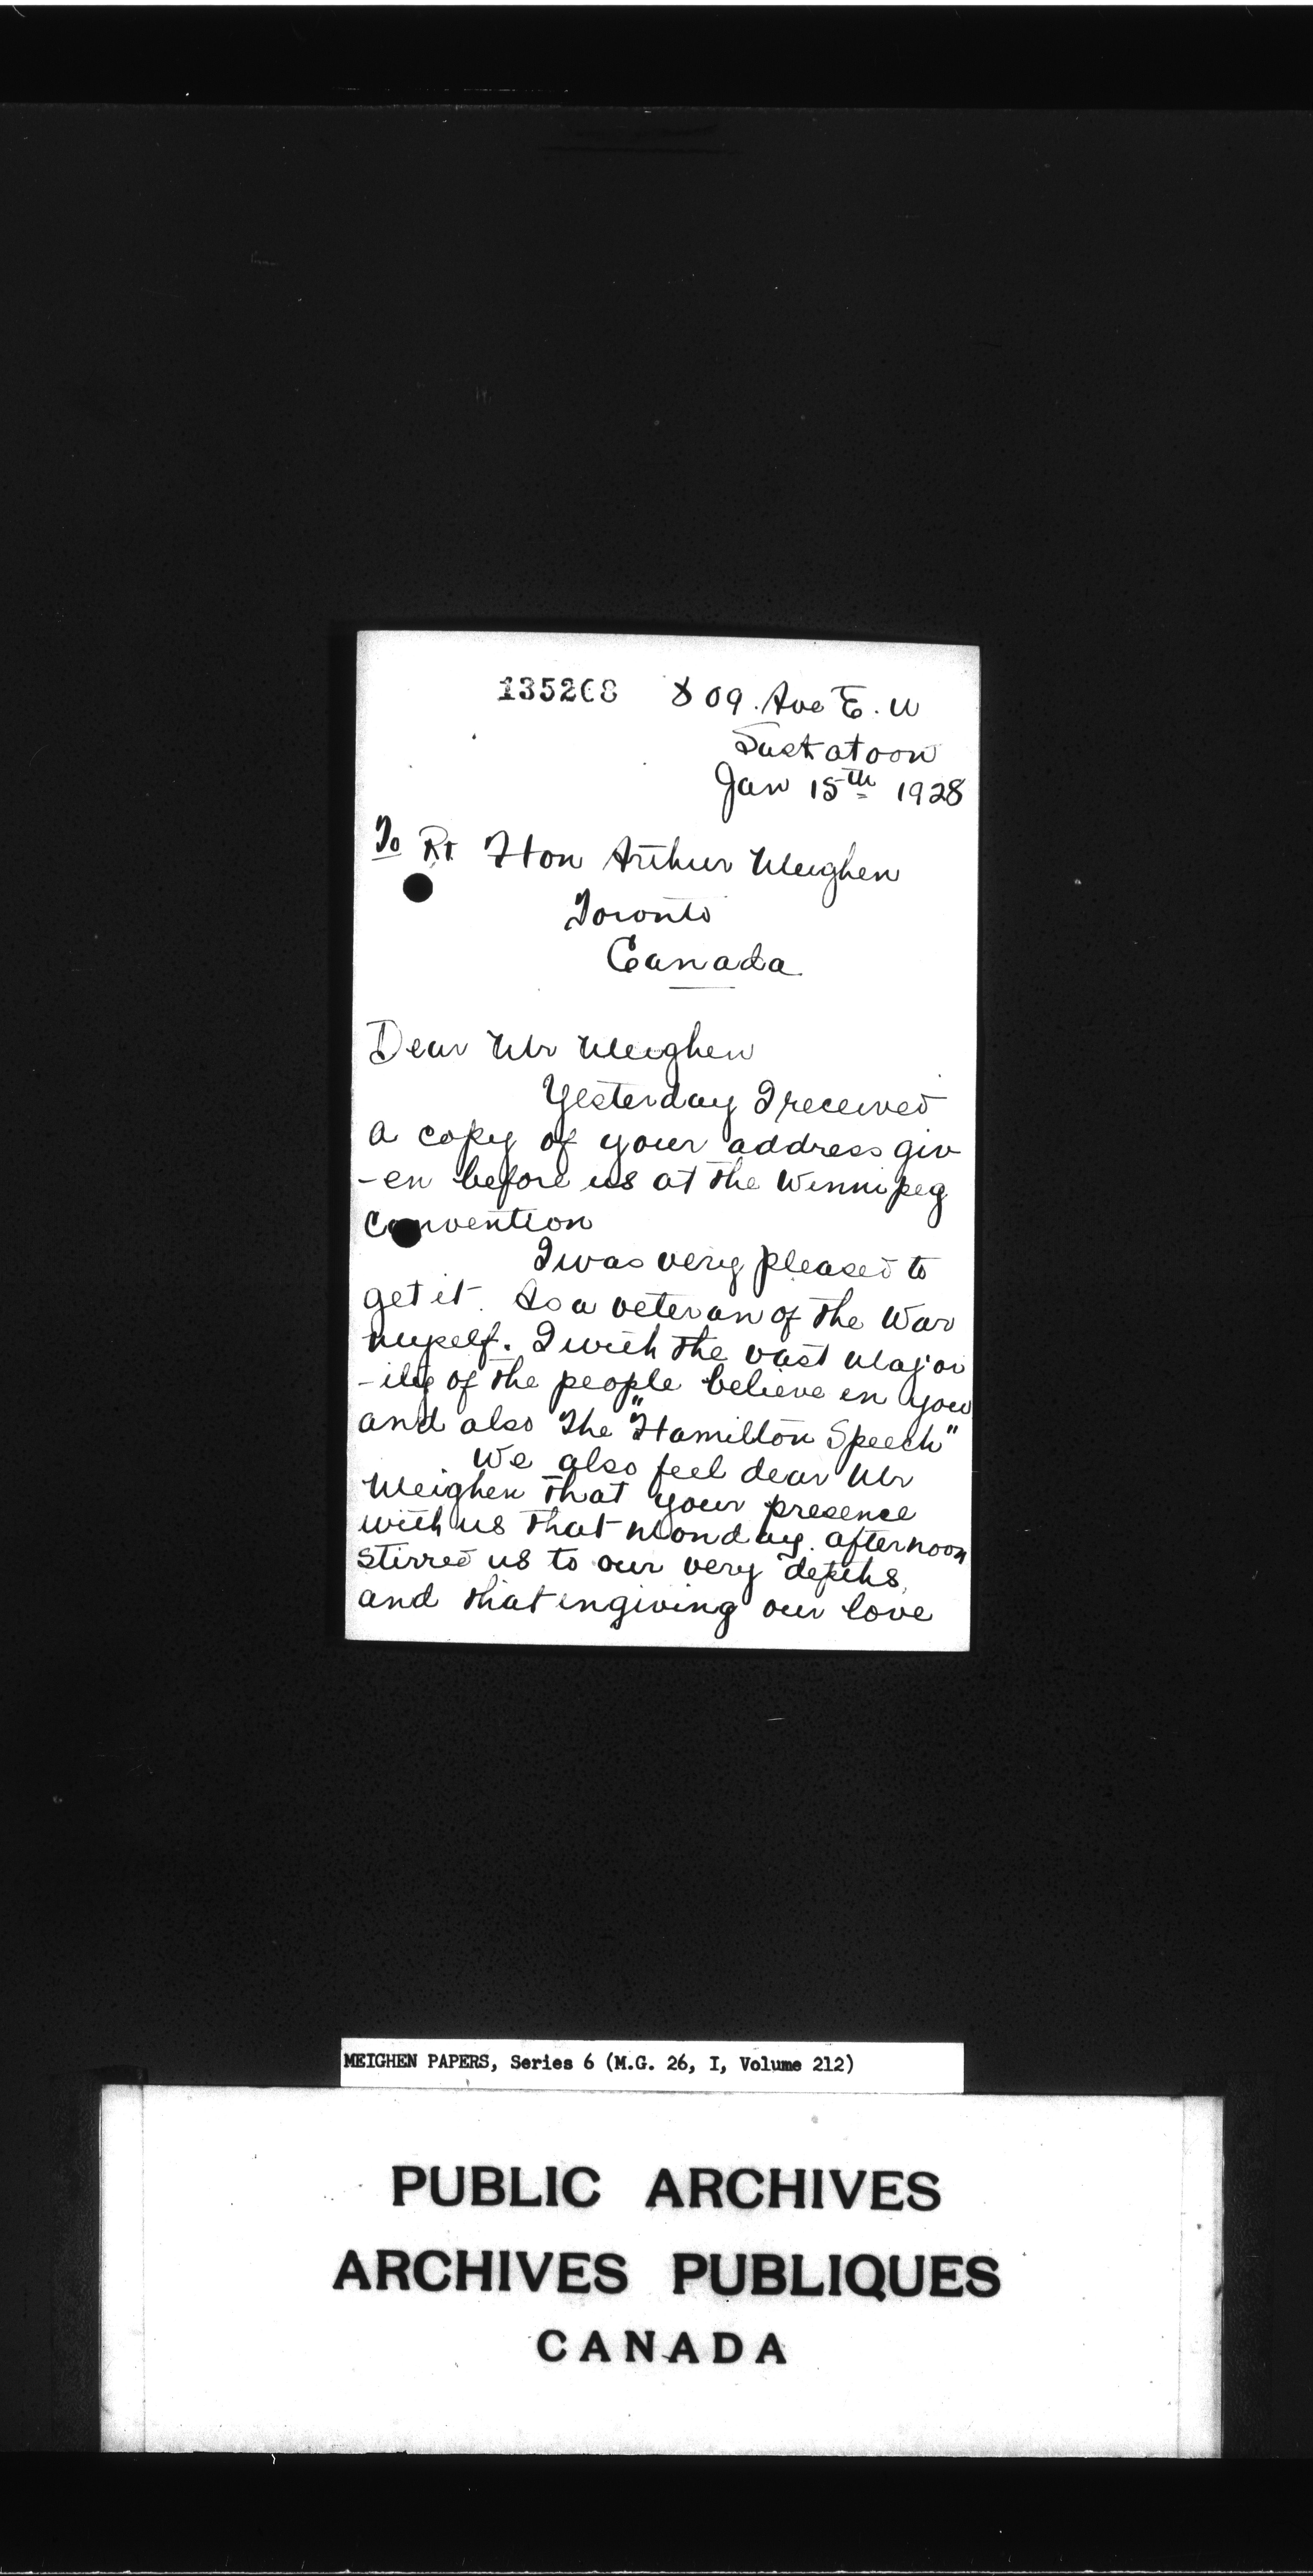 135268 809. Ave E. N
Saskatoon
Jan 15th 1928
To Rt Hon Arthur Meighen
Toronto
Canada
Dear Mr Meighen
Yesterday I received
a copy of your address giv
-en before us at the Winnipeg
Convention
I was very pleased to
get it. As a veteran of the War
myself. I with the vast Major
-ity of the people believe in you
and also The "Hamilton Speech"
We also feel dear Mr
Meighen that your presence
with us that Monday. afternoon
stirred us to our very depths,
and that in giving our love
MEIGHEN PAPERS, Series 6 (M.G. 26, I, Volume 212)
PUBLIC ARCHIVES
ARCHIVES PUBLIQUES
CANADA